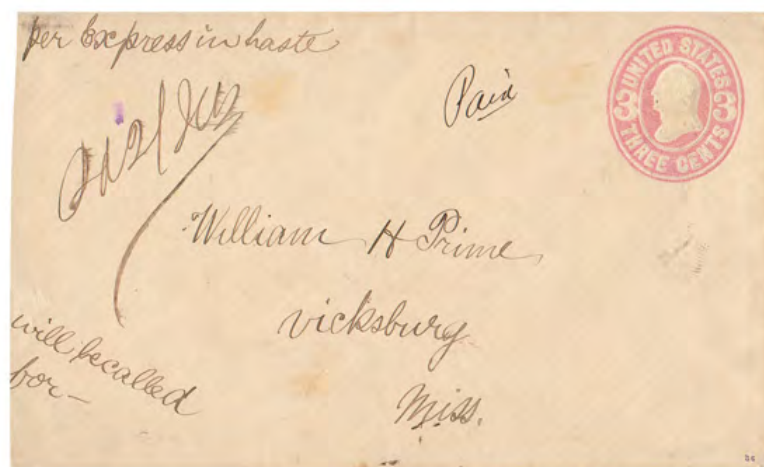 per Express in haste
UNITED STATES
3 3
THREE CENTS
Paid
William H Prime
vicksburg
Miss.
will be called
for-